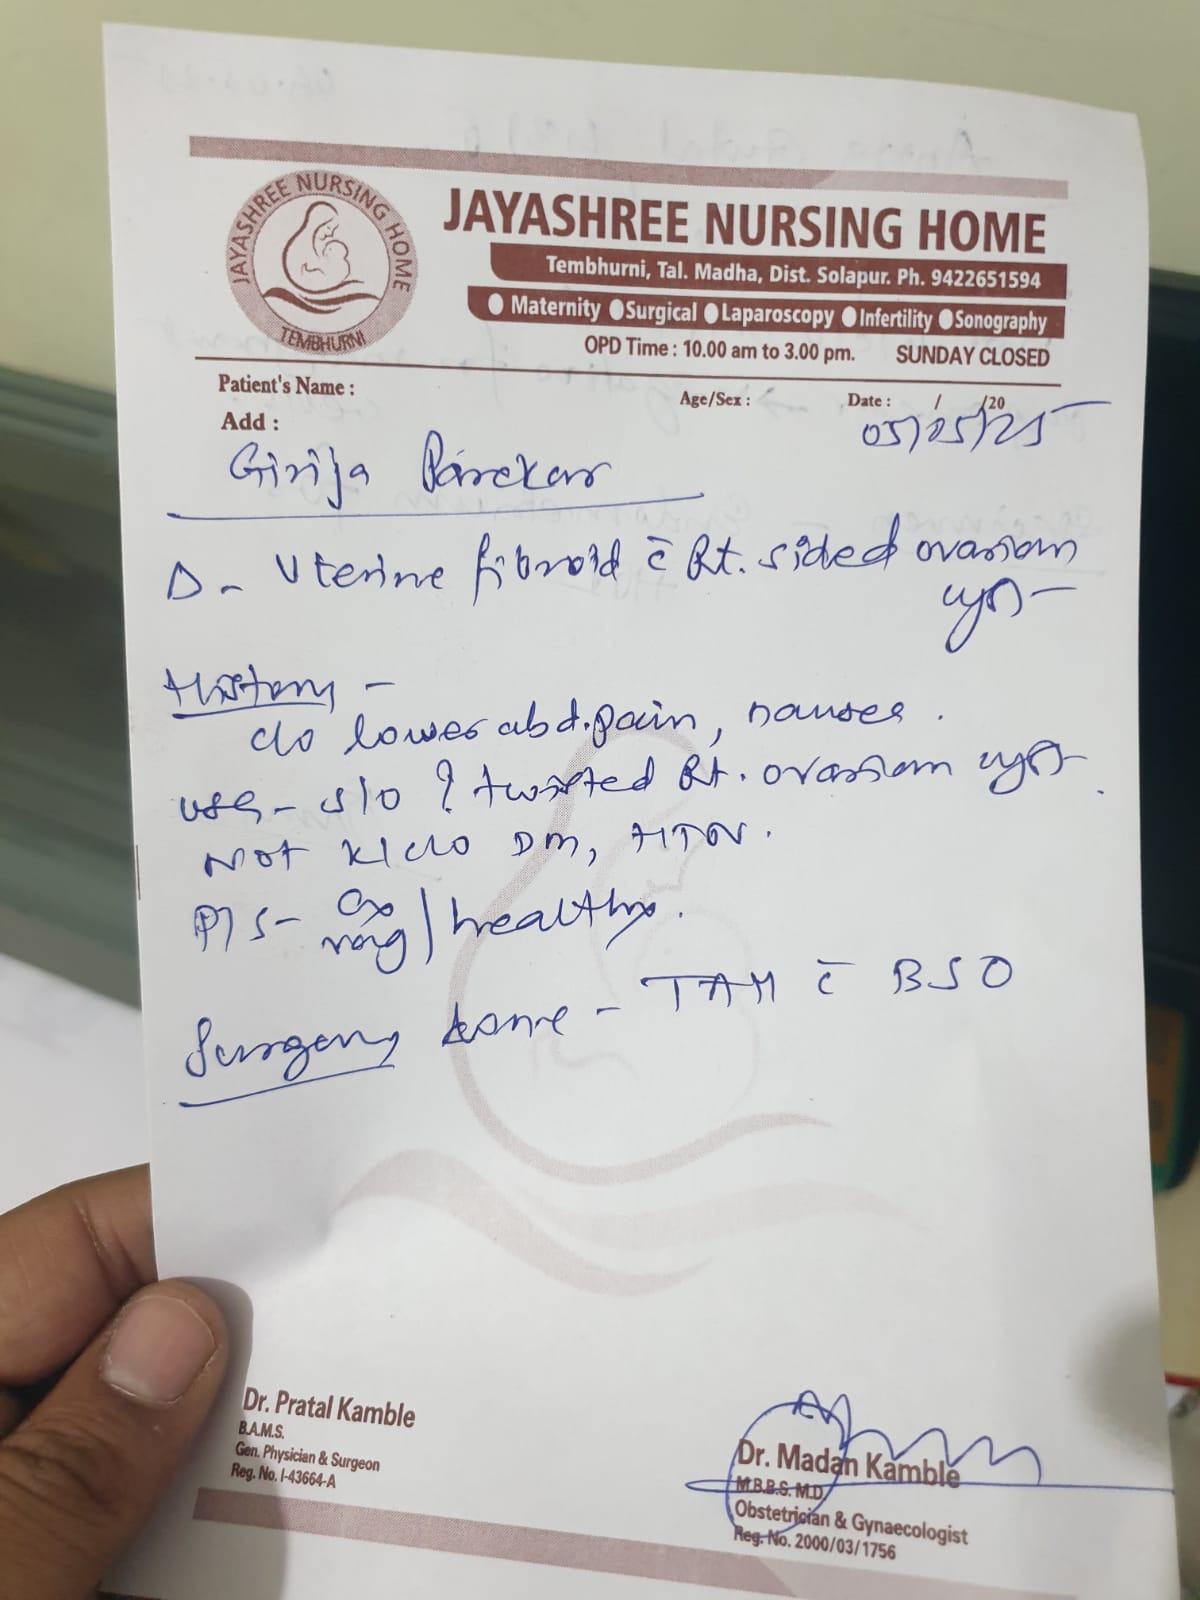 JAYASHREE NURSING HOME
TEMBHURNI
JAYASHREE NURSING HOME
Tembhurni, Tal. Madha, Dist. Solapur. Ph. 9422651594
Maternity Surgical Laparoscopy Infertility Sonography
OPD Time : 10.00 am to 3.00 pm. SUNDAY CLOSED
Patient's Name :
Age/Sex : Date : / /20
Add : 05/05/25
Girija Parekar
D - Uterine fibroid c̄ Rt. sided ovarian
cyst
History -
c/o lower abd. pain, nausea.
USG - s/o ? twisted Rt. ovarian cyst.
Not k/c/o DM, HTN.
P/S - Cx
vag / healthy.
Surgery done - TAH c̄ BSO
Dr. Pratal Kamble
B.A.M.S.
Gen. Physician & Surgeon
Reg. No. I-43664-A
Dr. Madan Kamble
M.B.B.S. M.D.
Obstetrician & Gynaecologist
Reg. No. 2000/03/1756